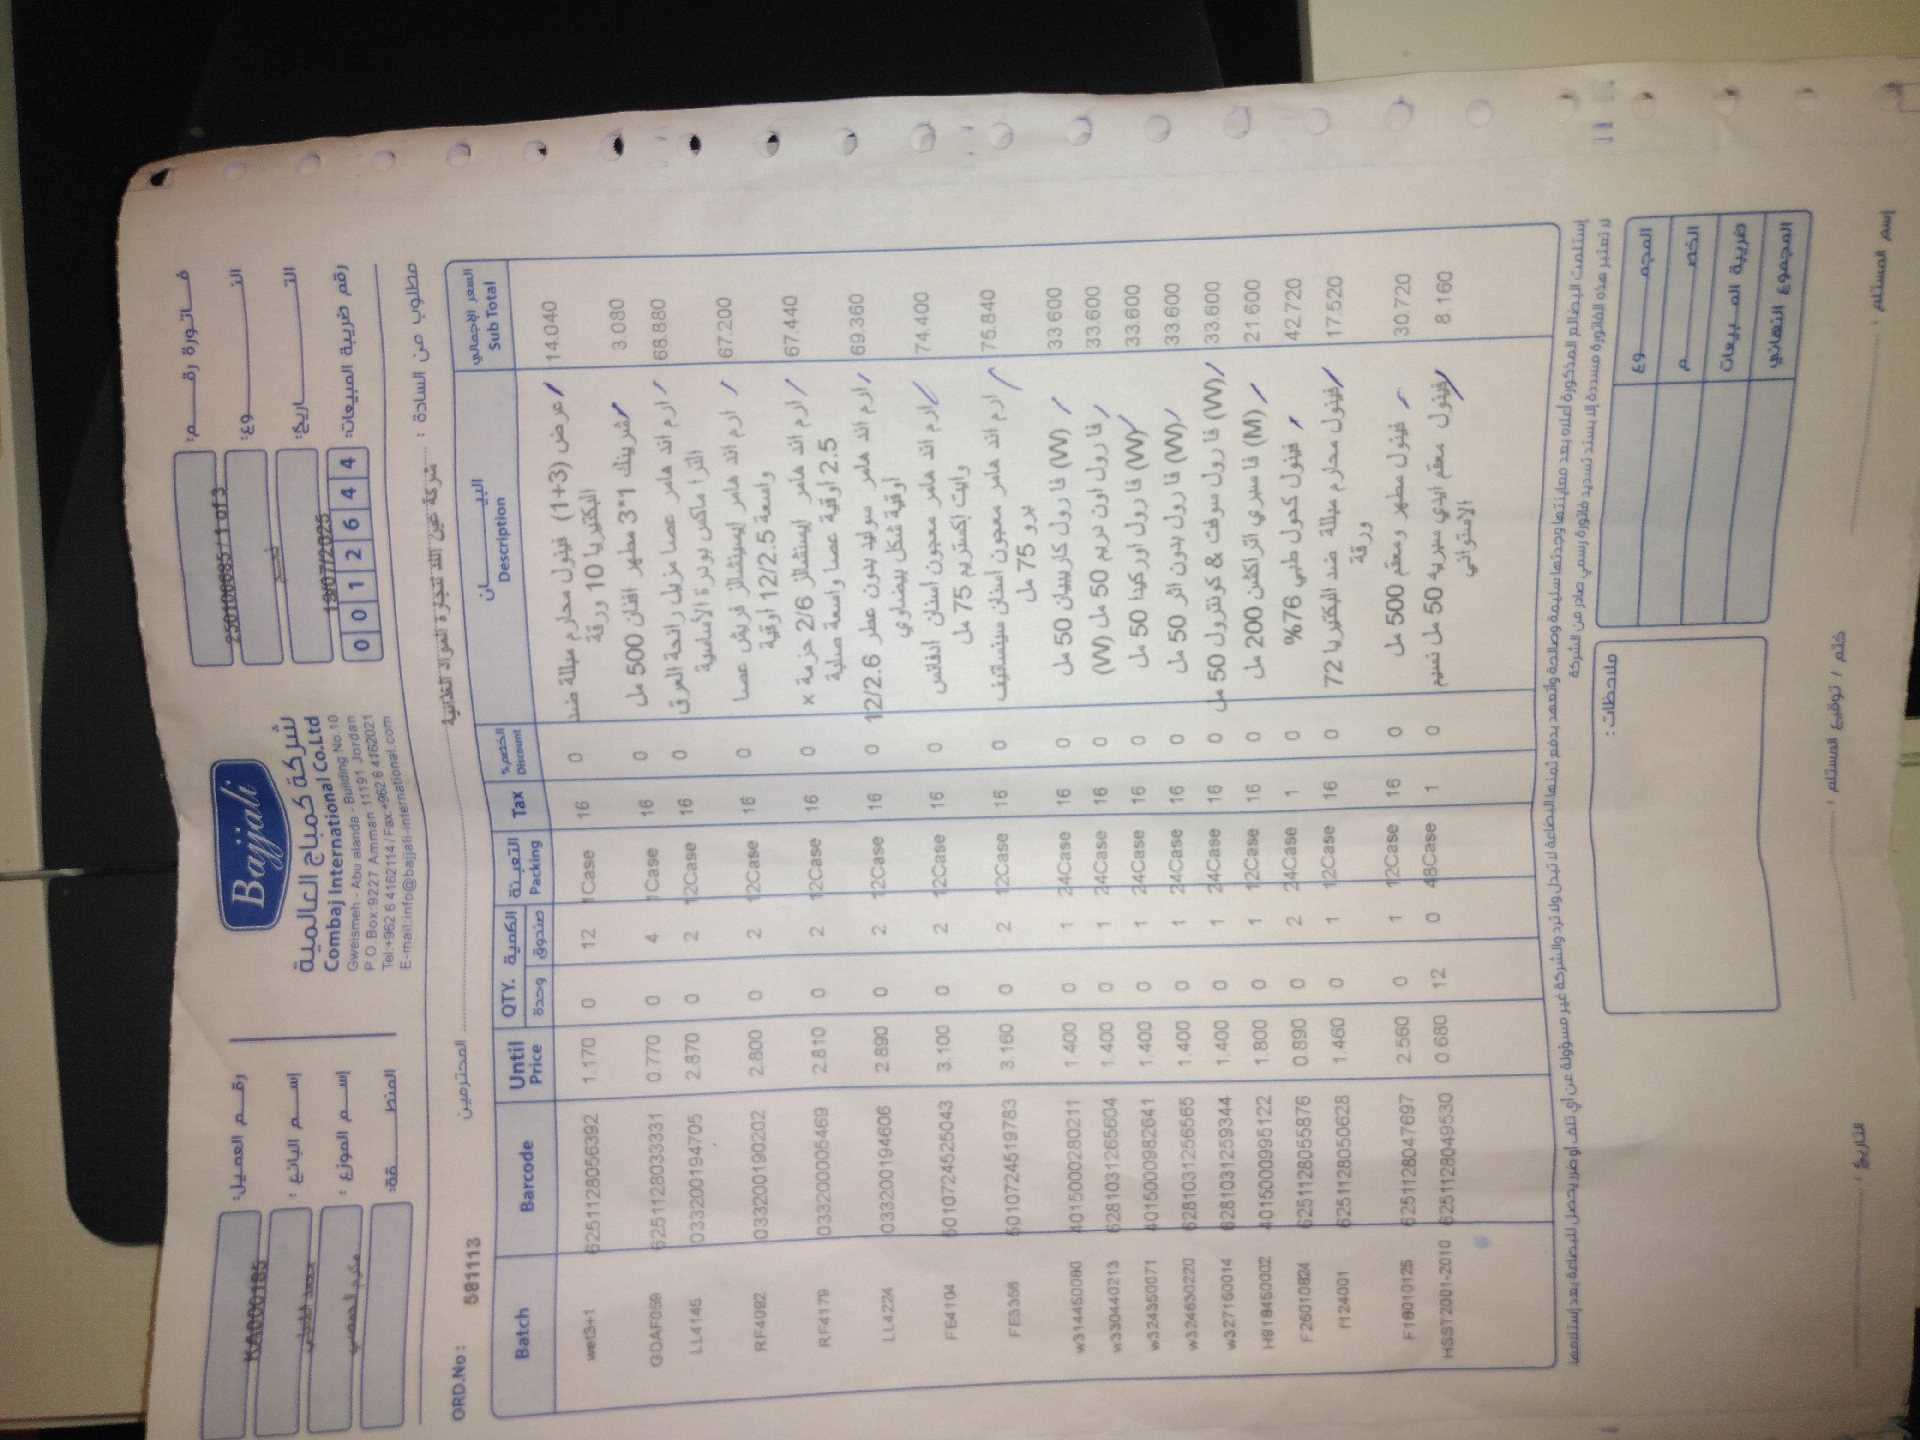 Bajjali
شركة كمباج العالمية
Combaj International Co.Ltd
Gweismeh - Abu alanda - Building No.10
P.O. Box:9227 Amman 11191 Jordan
Tel:+962 6 4162114 / Fax:+962 6 4162021
E-mail:info@bajjali-international.com
فاتورة رقم: 250100085 / 1 of 3
النوع:
التاريخ: 19/07/2025
رقم ضريبة المبيعات: 0 0 1 2 6 4 4
رقم العميل: KA000185
إسم البائع:
إسم الموزع:
المنطقة:
مطلوب من السادة: المحترمين
ORD.No: 581113
Batch Barcode Until Price QTY. الكمية وحدة صندوق التعبئة Packing Tax الخصم% Discount البيان Description السعر الإجمالي Sub Total
wet3+1 6251128056392 1.170 0 12 1Case 16 0 عرض (3+1) فينول محارم مبللة ضد 14.040
البكتيريا 10 ورقة
GDAF059 6251128033331 0.770 0 4 1Case 16 0 شرينك 1*3 مطهر افنان 500 مل 3.080
LL4145 033200194705 2.870 0 2 12Case 16 0 ارم اند هامر عصا مزيل رائحة العرق 68.880
الترا ماكس بودرة الأساسية
RF4092 033200190202 2.800 0 2 12Case 16 0 ارم اند هامر ايسينشالز فريش عصا 67.200
واسعة 12/2.5 اوقية
RF4179 033200005469 2.810 0 2 12Case 16 0 ارم اند هامر ايسنشالز 2/6 حزمة × 67.440
2.5 اوقية عصا واسعة صلبة
LL4224 033200194606 2.890 0 2 12Case 16 0 ارم اند هامر سوليد بدون عطر 12/2.6 69.360
اوقية شكل بيضاوي
FE4104 5010724525043 3.100 0 2 12Case 16 0 ارم اند هامر معجون اسنان ادفانس 74.400
وايت إكستريم 75 مل
FE3356 5010724519783 3.160 0 2 12Case 16 0 ارم اند هامر معجون اسنان سينسيتيف 75.840
برو 75 مل
w314450080 4015000280211 1.400 0 1 24Case 16 0 فا رول كاريبيان 50 مل (W) 33.600
w330440213 6281031265604 1.400 0 1 24Case 16 0 فا رول اون دريم 50 مل (W) 33.600
w324350071 4015000982641 1.400 0 1 24Case 16 0 فا رول اوركيدا 50 مل (W) 33.600
w324630220 6281031256565 1.400 0 1 24Case 16 0 فا رول بدون اثر 50 مل (W) 33.600
w327150014 6281031259344 1.400 0 1 24Case 16 0 فا رول سوفت & كونترول 50 مل (W) 33.600
H918450002 4015000995122 1.800 0 1 12Case 16 0 فا سبري اتراكشن 200 مل (M) 21.600
F26010824 6251128055876 0.890 0 2 24Case 1 0 فينول كحول طبي 76% 42.720
f124001 6251128050628 1.460 0 1 12Case 16 0 فينول محارم مبللة ضد البكتيريا 72 17.520
ورقة
F18010125 6251128047697 2.560 0 1 12Case 16 0 فينول مطهر ومعقم 500 مل 30.720
HSST2001-2010 6251128049530 0.680 12 0 48Case 1 0 فينول معقم ايدي سبريه 50 مل نسيم 8.160
الاستوائي
لا تعتبر هذه الفاتورة مسددة إلا بسند تسديد فاتورة رسمي صادر من الشركة
ملاحظات:
المجموع
الخصم
ضريبة المبيعات
المجموع النهائي
إسم المستلم:
ختم / توقيع المستلم:
التاريخ: